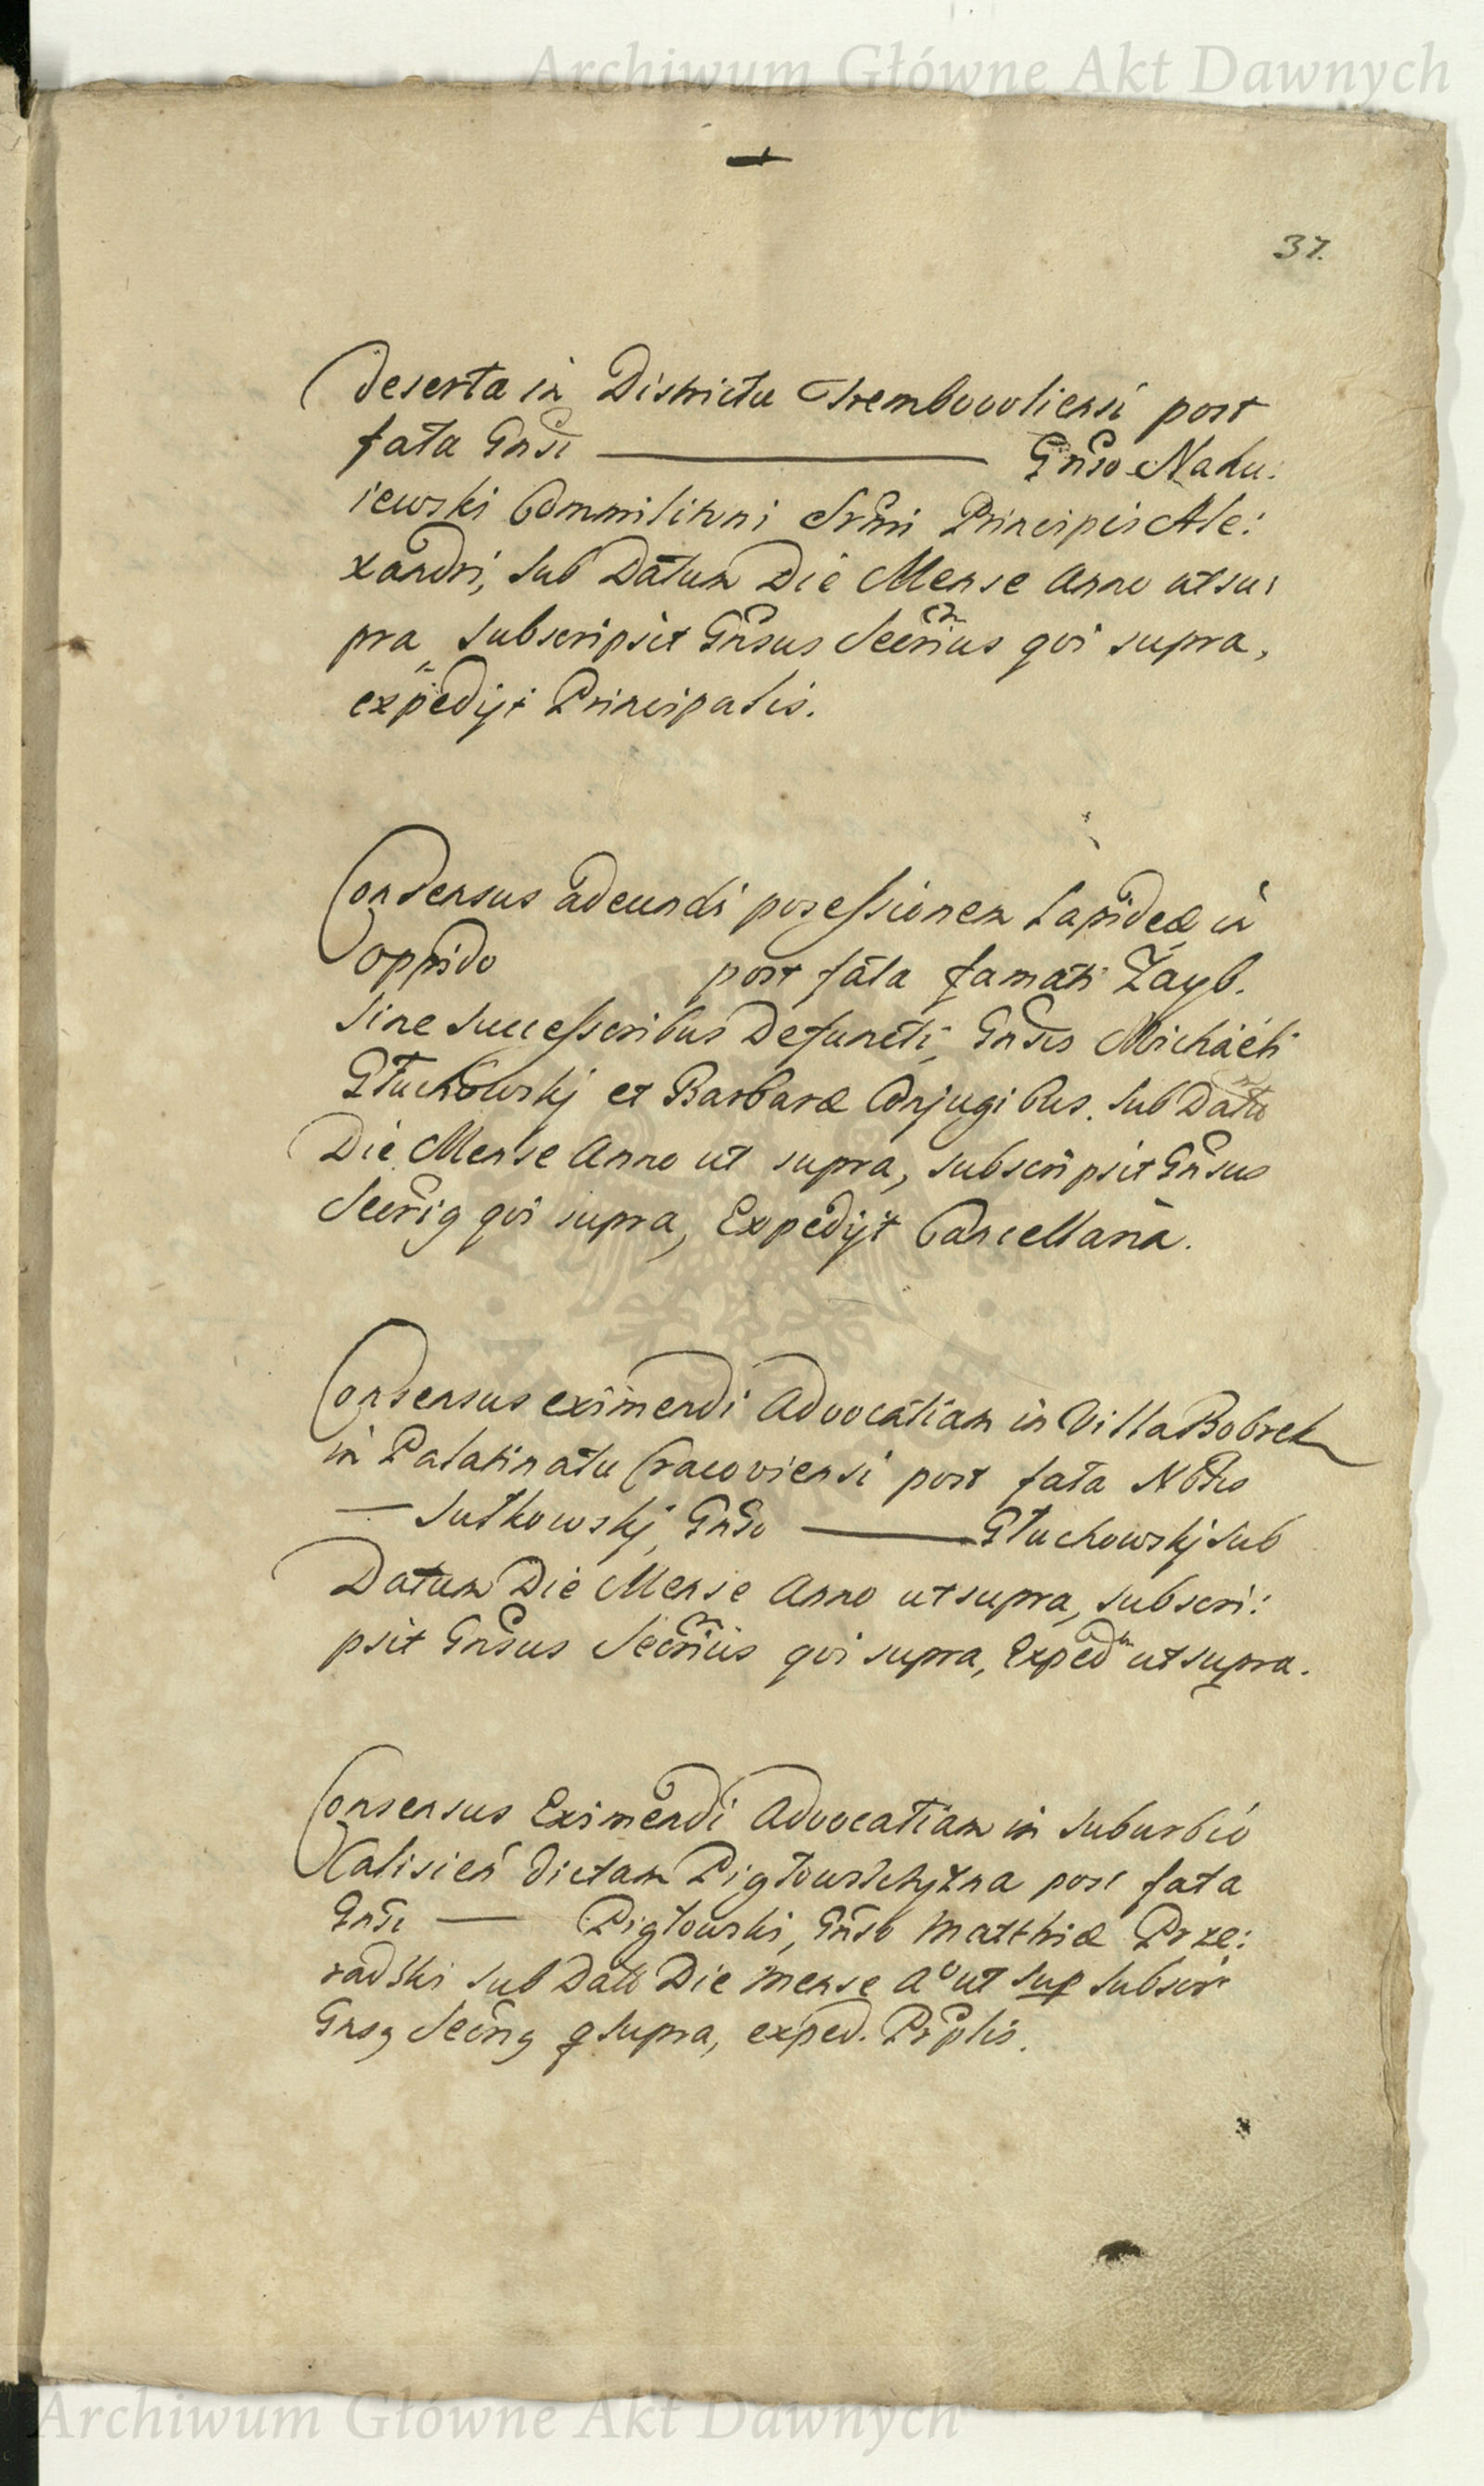 Archiwum Główne Akt Dawnych
37.
deserta in Districtu Trembovoliensi post
fata Gnsi ——— Gnso Nadu:
iewski Commilitoni Srmi Principis Ale:
xandri, sub Datum Die Mense Anno ut su:
pra, subscripsit Gnsus Secrius qvi supra,
expedijt Principalis.
Consensus adeundi posessionem Lapideæ in
Oppido post fata famati Zayb.
sine successoribus Defuncti, Gnsis Michaeli
Głuchowskj et Barbaræ Conjugibus. sub Datto
Die Mense Anno ut supra, subscripsit Gnsus
Secrig qvi supra, Expedijt Cancellaria.
Consensus eximendi Advocatiam in Villa Bobrek
in Palatinatu Cracoviensi post fata Nobis
— Sutkowskj, Gnso ——— Głuchowskj sub
Datum Die Mense Anno ut supra, subscri:
psit Gnsus Secrius qvi supra, Exped ut supra.
Consensus Eximendi Advocatiam in suburbio
Calisień dictam Pigłowschyzna post fata
Gnsi — Pigłowski, Gnso Matthiæ Prze:
radski sub Datt Die mense Ao ut sup subscr
Gnsg Secrig q supra, exped. Prplis.
Archiwum Główne Akt Dawnych